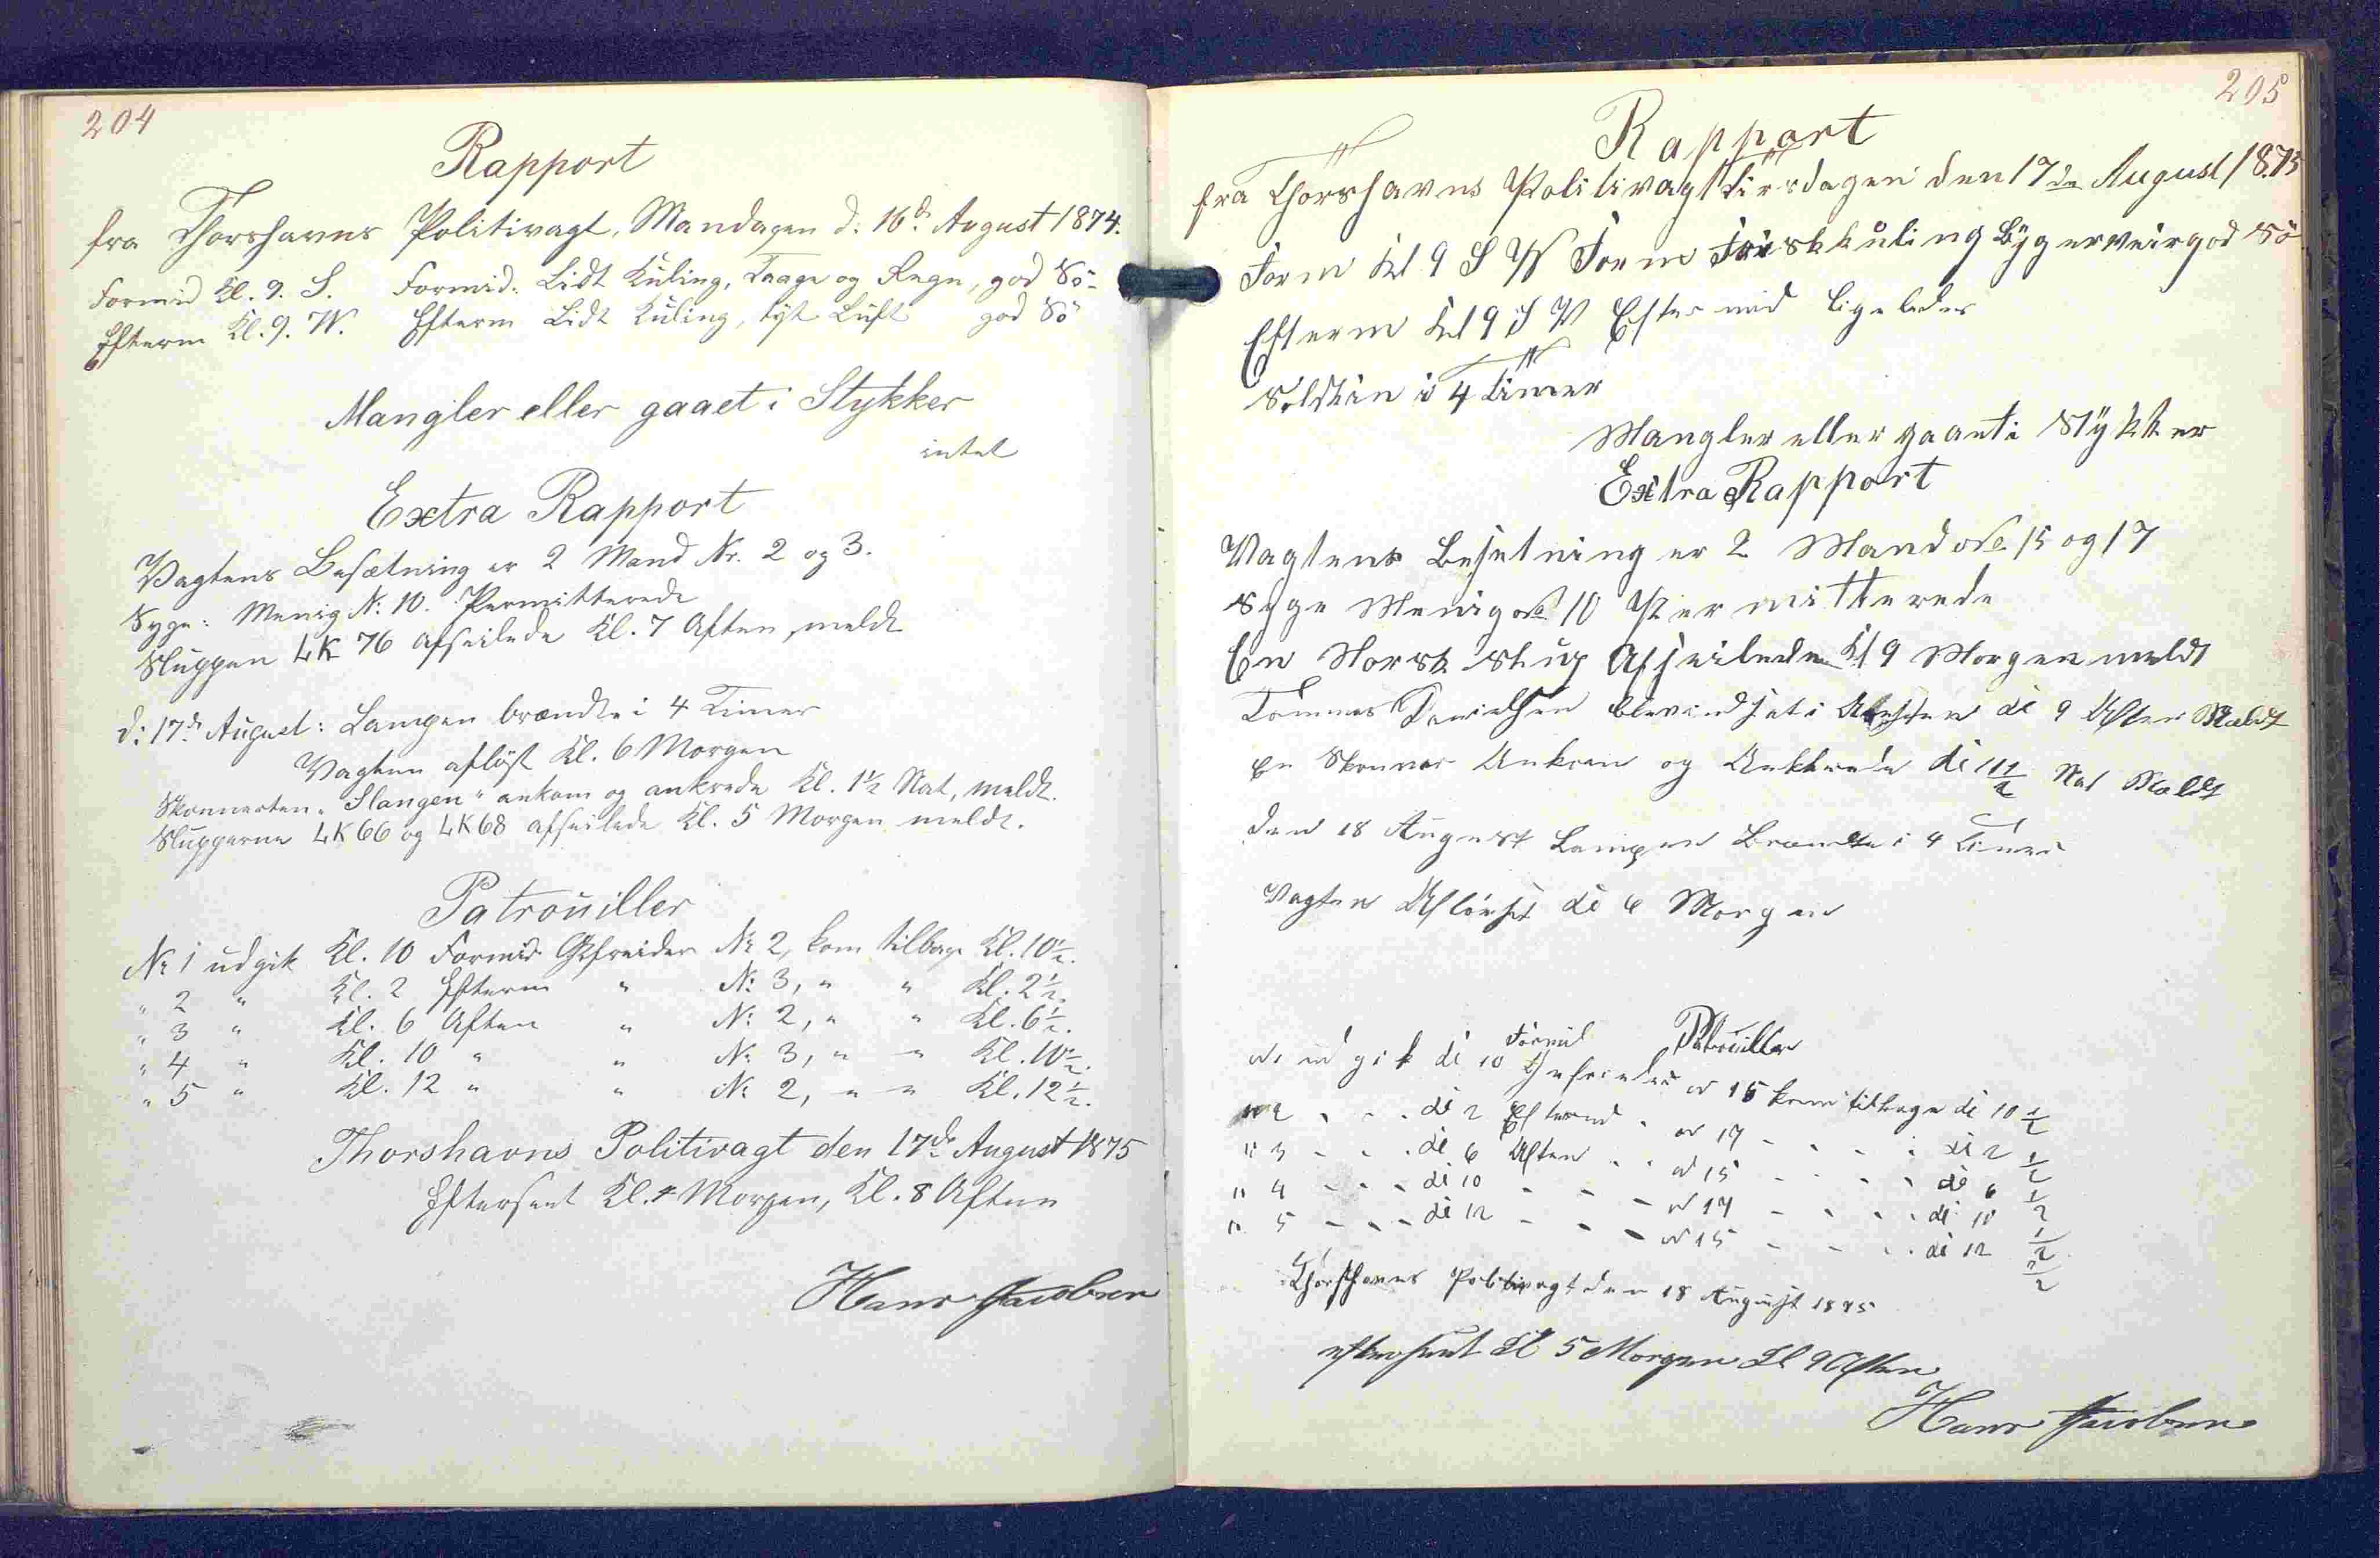 204
Rapport
fra Thorshavns Politivagt, Mandagen d: 16de August 1874.
Formid Kl. 9. S. Formid. Lidt Kuling, Taage og Regn, god Sö
Efterm Kl. 9. W. Efterm Lidt Kuling, tyk Luft god Sö
Mangler eller gaaet i Stykker
intet
Extra Rapport
Vagtens Besætning er 2 Mand Nr. 2 og 3.
Syge: Menig N: 10. Permitterede
Sluppen LK 76 afseilede Kl. 7 Aften, meldt
d: 17de August: Lampen brændte i 4 Timer
Vagten aflöst Kl. 6 Morgen
Skonnerten "Slangen" ankom og ankrede Kl. 1½ Nat, meldt.
Slupperne LK 66 og LK 68 afseilede Kl. 5 Morgen meldt.
Patrouiller
Nr 1 udgik Kl. 10 Formid. Gefreider Nr 2, kom tilbage Kl. 10½.
" 2 " Kl. 2 Efterm " N: 3, " " Kl. 2½.
" 3 " Kl. 6 Aften " N: 2, " " Kl. 6½.
" 4 " Kl. 10 " " Nr 3, " " Kl. 10½.
" 5 " Kl. 12 " " Nr 2, " " Kl. 12½.
Thorshavns Politivagt den 17de August 1875
Efterseet Kl. Morgen, Kl. 8 Aften
Hans Jacobsen
205
Rapport
fra Thorshavns Politivagt Tirsdagen den 17de August 1875
Form Kl 9 S W Form Friskkuling Bygerveir god Sö
Efterm Kl 9 S W Eftermid ligeledes
i 4 Timer
Mangler eller gaaet i Stykker
Extra Rapport
Vagtens Besetning er 2 Mand No 15 og 17
Syge Menig No 10 Permitterede
En Norsk Slup Afseilede Kl 9 Morgen meldt
Tommes Danielsen blev indsat i Aresten Kl 9 Aften Meldt
En Skonnar Ankom og Ankrede Kl 11½ Nat Meldt
den 18 August Lampen Brændte i 4 Timer
Vagten Aflöuset Kl 6 Morgen
Patrouiller
N1 udgik Kl 10 Formid Gefreider N 15 kom tilbage Kl 10 ½
" 2 " " " Kl 2 Efterm " N 17 - - - Kl 2 ½
" 3 - - - Kl 6 Aften " " N 15 - - - Kl 6 ½
" 4 - - - Kl 10 - - - N 17 - - - Kl 10 ½
" 5 - - - Kl 12 - - - N 15 - - - Kl 12 ½
Thorshavns Politivagt den 18 August 1875
efterseet Kl 5 Morgen Kl 9 Aften
Hans Jacobsen